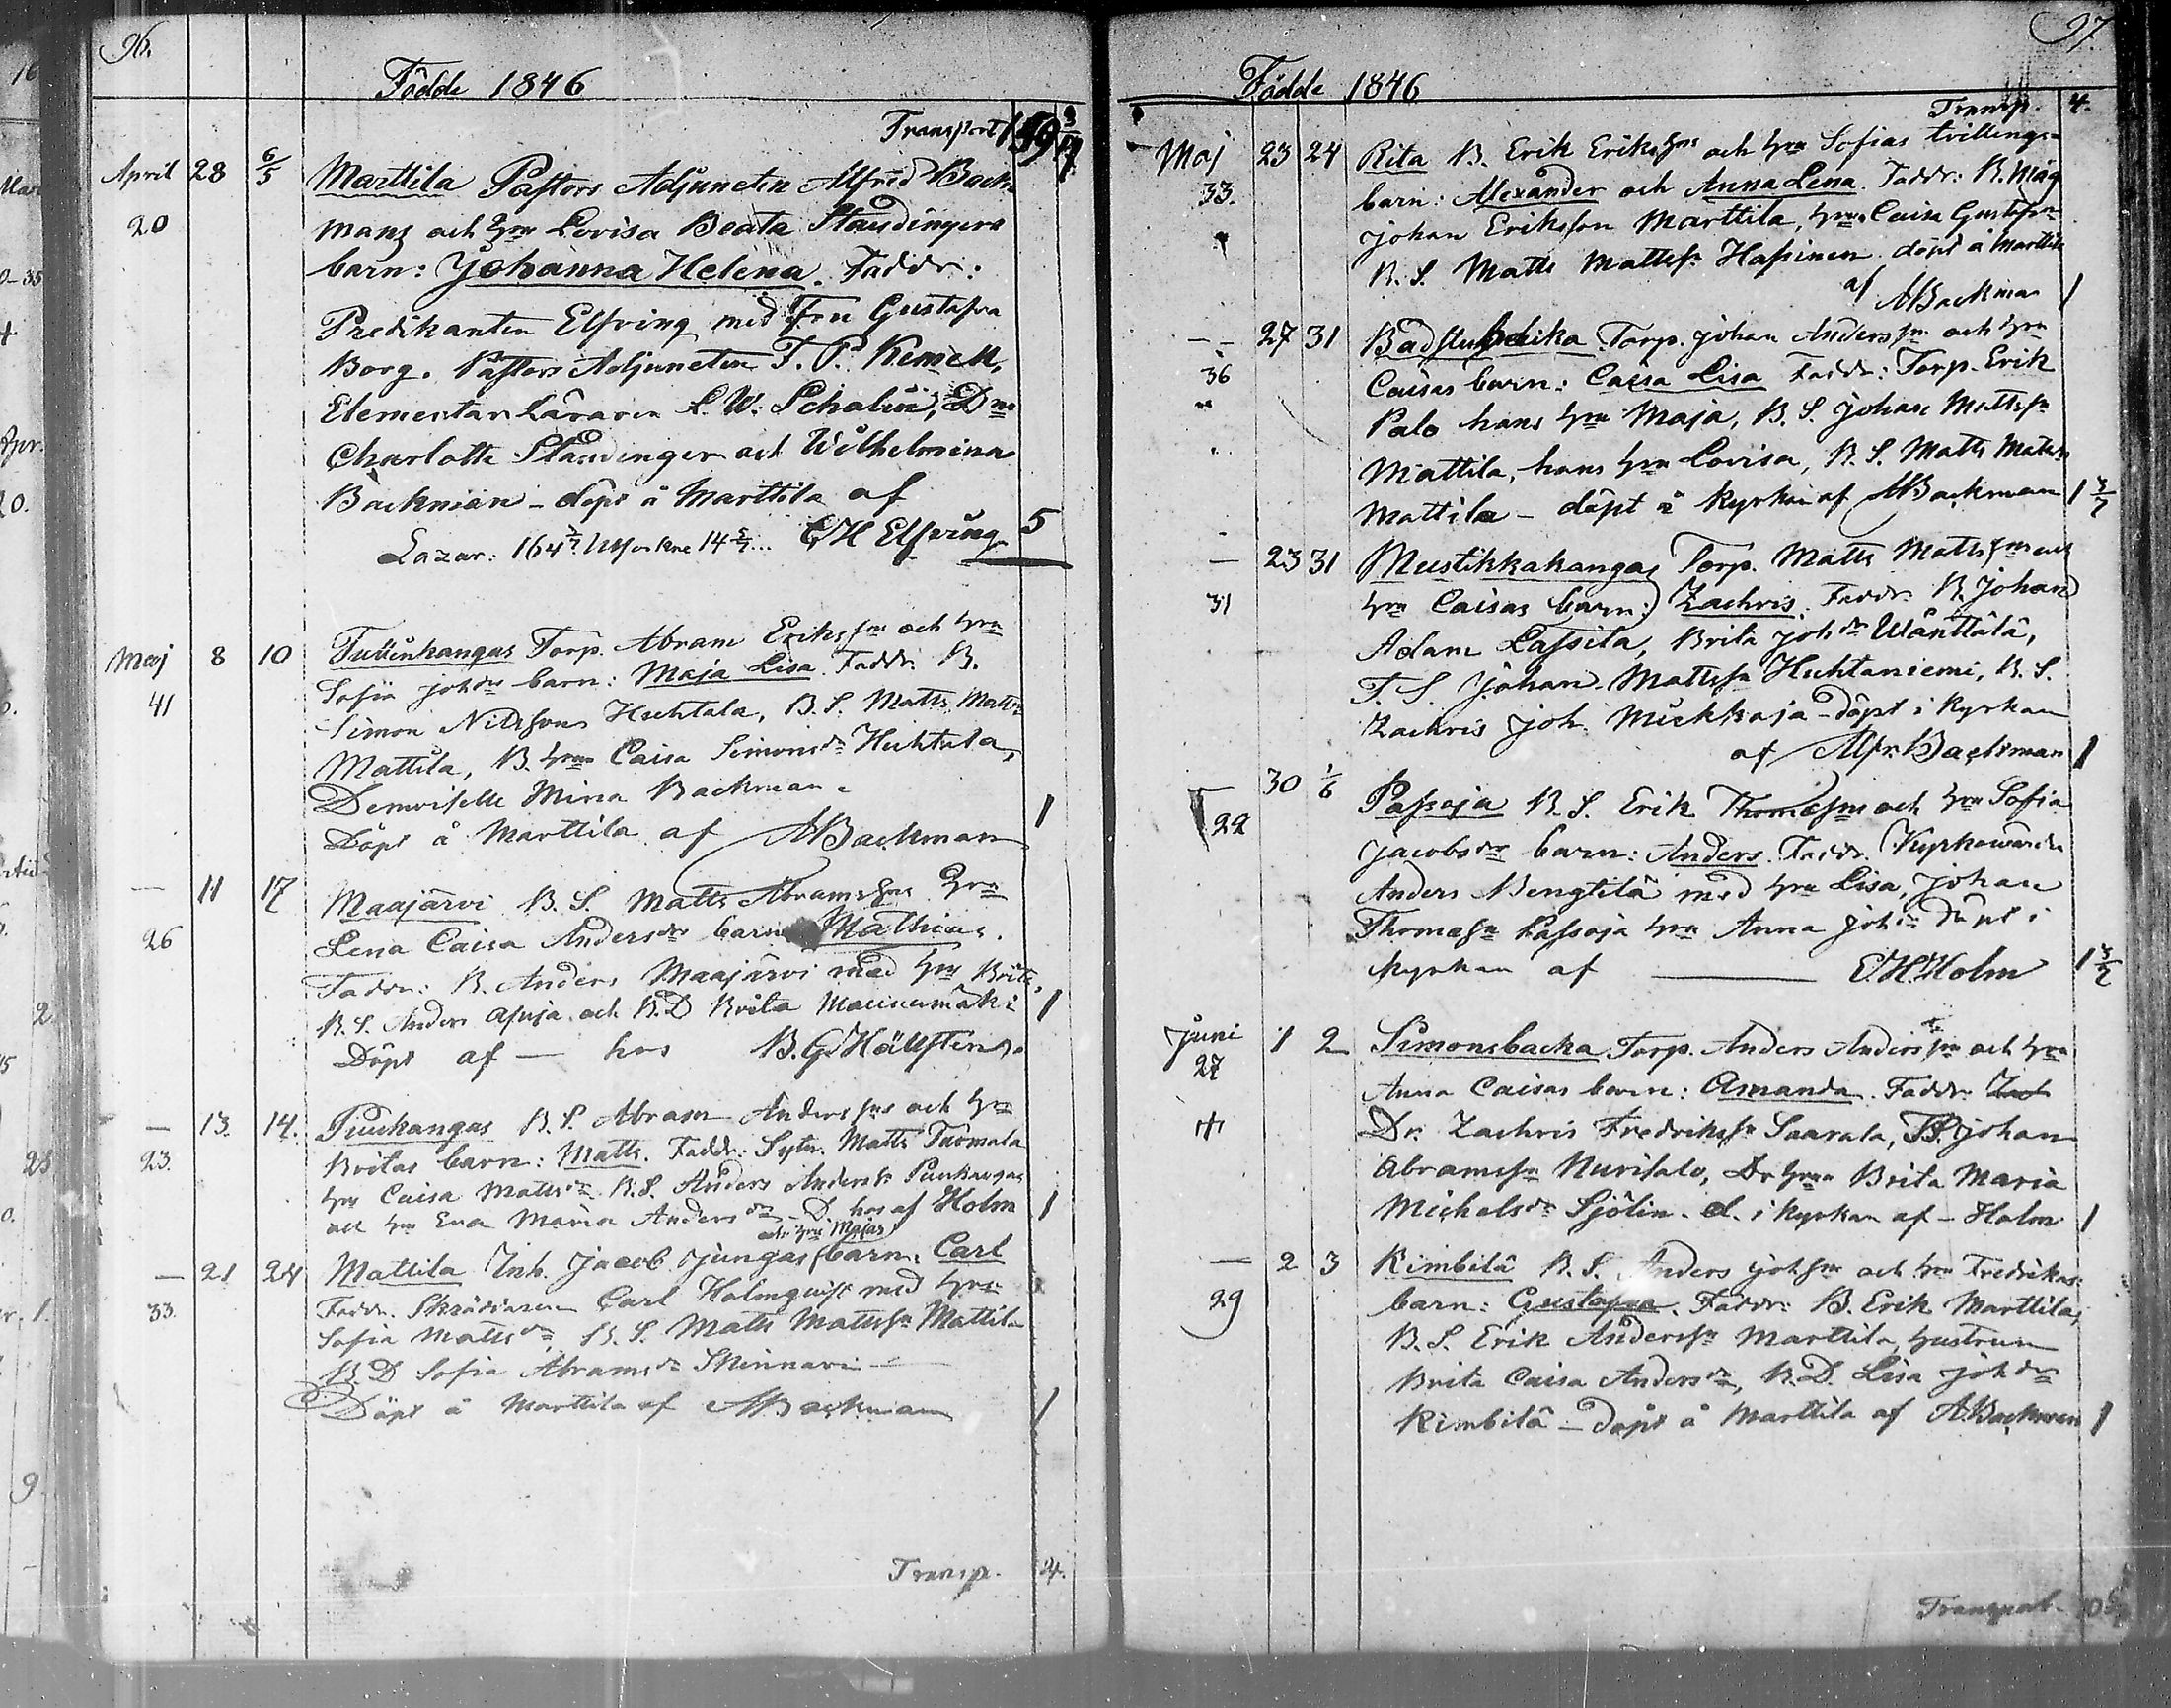 96.
Födde 1846
Transport 159 3/7
April 28 6/5 Marttila Pastors Adjuncten Alfred Back-
20 mans och hru Lovisa Beata Staudingers
barn: Johanna Helena. Faddr:
Predikanten Elfving med Fru Gustafva
Borg. Pastors Adjuncten F. P. Kemell,
Elementar Läraren L. W. Schalin, Dne
Charlotte Staudinger och Wilhelmina
Backman - döpt å Marttila af
Lazar: 164 14 5/7... CH Elfving 5
Maj 8 10 Torp. Abram Erikssns och hru
41 Sofia johdrs barn: Maja Lisa. Faddr. B.
Simon Nilssons Huhtala, B. S. Matts Mattss
Mattila, B. hru Caisa Simonsdr Huhtala,
Demoiselle Mina Backman.
Döpt å Marttila af ABackman 1
— 11 17 Maajärvi B. S. Matts Abramssns hru
26 Lena Caisa Andersdrs barn Mathias.
Faddr: B. Anders Maajärvi med hru Brita,
B. S. Anders och B. D Brita 1
Döpt af — hos B. G. Hällsten
— 13. 14. Puukangas B. S. Abram Anderssns och hru
23. Britas barn: Matts. Faddr: Sytn. Matts Tuomala
hru Caisa Mattsdr B. S. Anders Anderssn Puukangas
och hru Eva Maria Andersdr - D. hos af Holm 1
och hru Majas
— 21 24 Mattila Inh. Jacob Jungas barn: Carl
33. Faddr. Skräddaren Carl Holmquist med hru
Sofia Mattsdr, B. S. Matts Mattssn Mattila
B. D Sofia Abramsdr Skinnari —
Döpt å Marttila af ABackman 1
Transp. 4.
97
Födde 1846
Transp. 4.
Maj 23 24 Rita B. Erik Erikssns och hru Sofias tvillinge-
33. barn: Alexander och Anna Lena. Faddr: B. Måg
Johan Eriksson Marttila, hru Caisa Gustafsdr
B. S. Matts Mattssn Hassinen. döpt å Marttila
af ABackman 1
— 27 31 Badstubacka Torp. Johan Anderssns och hru
36 Caisas barn: Caisa Lisa Faddr: Torp. Erik
Palo hans hru Maja, B. S. Johan Mattssn
Mattila, hans hru Lovisa, B. S. Matts Mattss
Mattila - döpt å kyrkan af ABackman 1 3/7
— 23 31 Mustikkakangas Torp. Matts Mattssns och
31 hru Caisas barn: Zachris. Faddr. B. Johan
Adam Lassila, Brita Johdr Wänttälä,
T. S. Johan Mattssn Huhtaniemi, B. S.
Zachris Joh. Mickkaja - döpt i kyrkan
af Alfr. Backman 1
30 1/6 Passoja B. S. Erik Thomassns och hru Sofia
22 Jacobsdrs barn: Anders. Faddr. Kyrkowärden
Anders Bengtilä med hru Lisa, Johan
Thomassn Passoja hru Anna Johdr Döpt i
kyrkan af — E. H. Holm 1 3/7
Juni 1 2 Simonsbacka Torp. Anders Anderssns och hru
27 Anna Caisas barn: Amanda. Faddr. Zach
Dr. Zachris Fredrikssn Saarala, B. Johan
Abramssn Nurisalo, Dr hru Brita Maria
Michelsdr Sjölin. d. i kyrkan af - Holm 1
— 2 3 Kimbilä B. S. Anders Johssns och hru Fredrikas
29 barn: Gustafva. Faddr: B. Erik Marttila,
B. S. Erik Anderssn Marttila, hustrun
Brita Caisa Andersdr, B. D. Lisa Johdr
Kimbilä - döpt å Marttila af A. Backman 1
Transport.